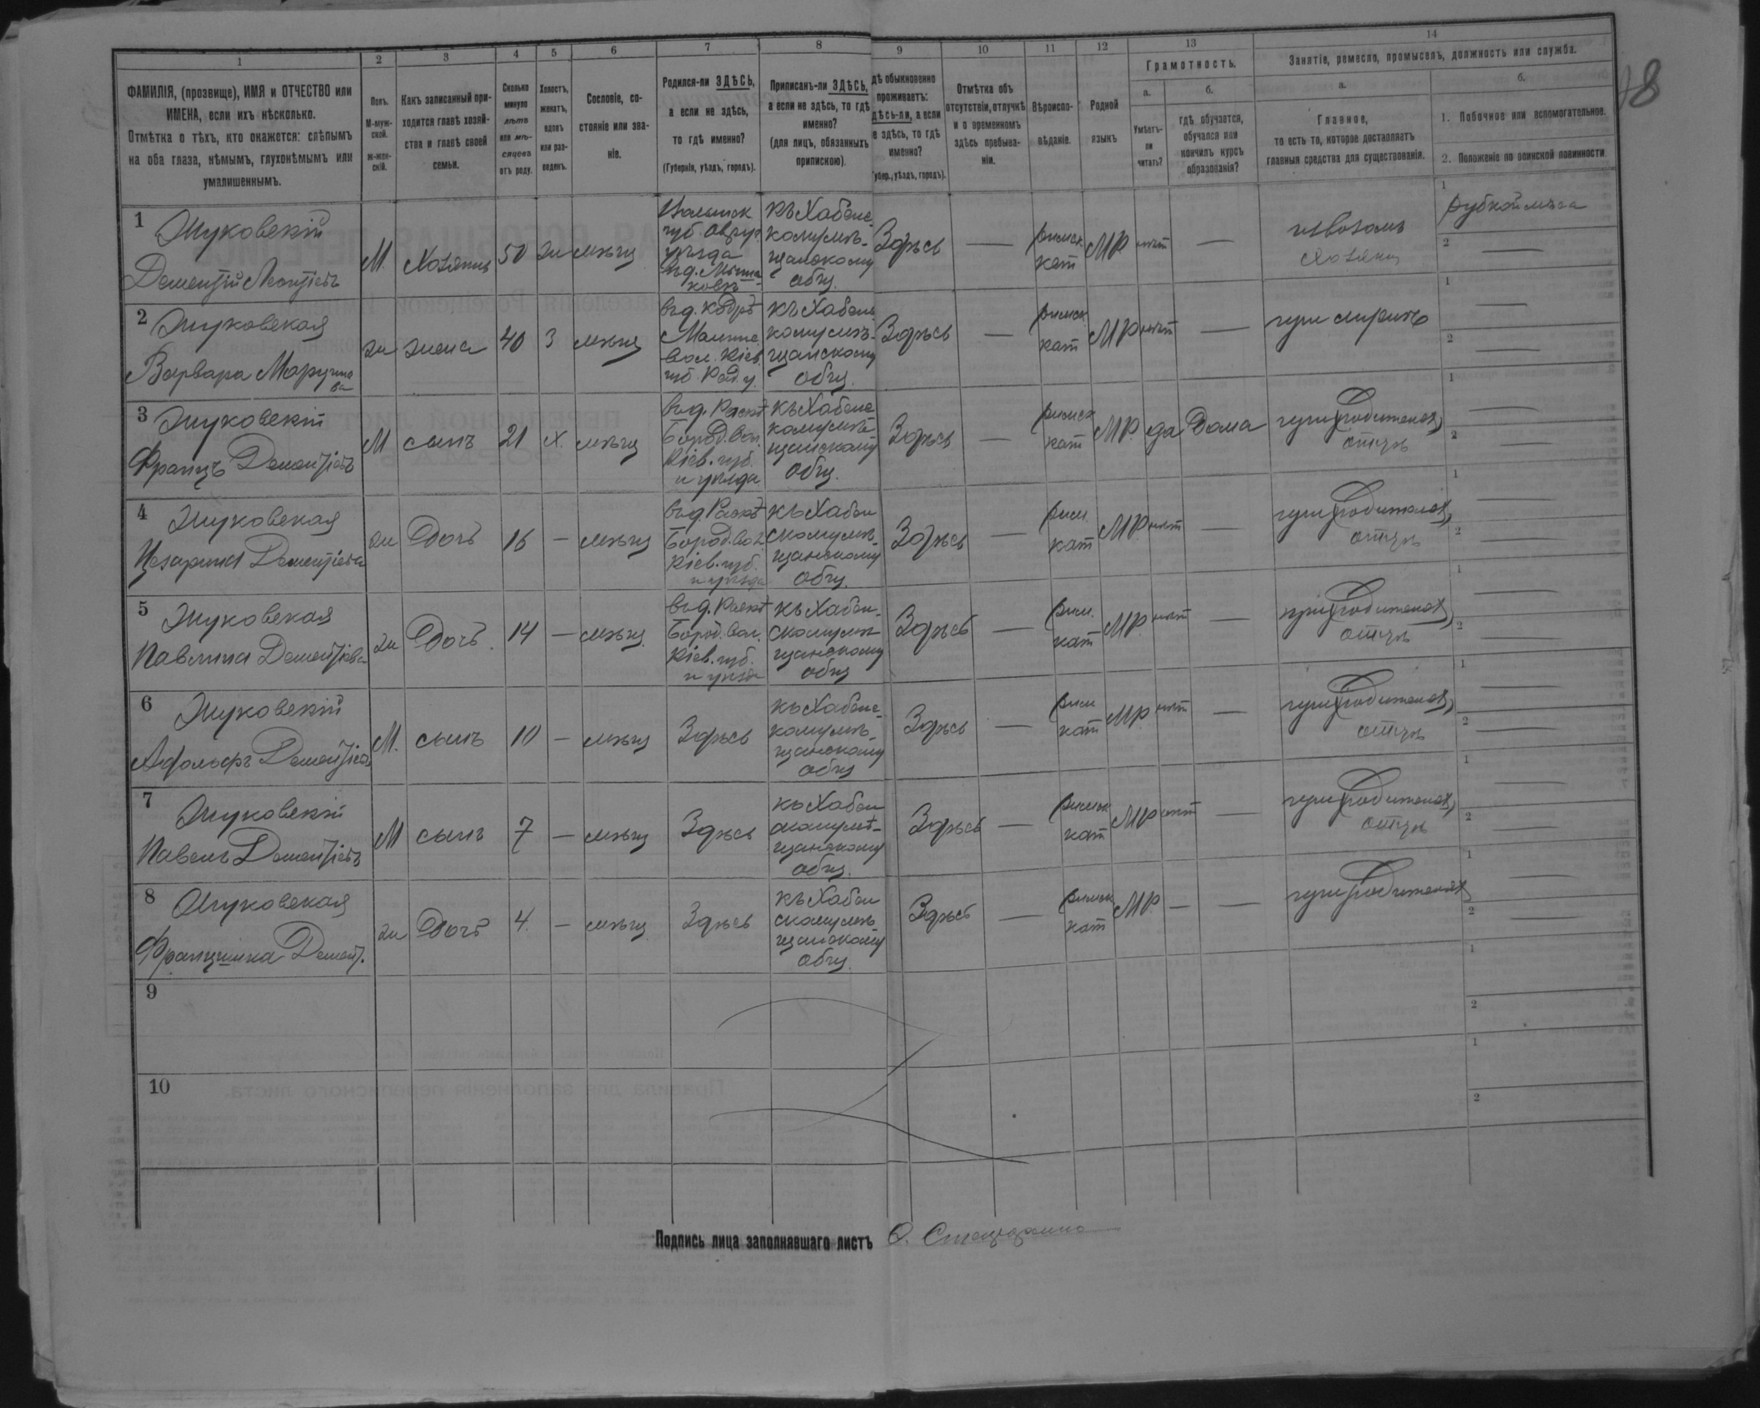 1 2 3 4 5 6 7 8 9 10 11 12 13 14
ФАМИЛІЯ, (прозвище), ИМЯ и ОТЧЕСТВО или
ИМЕНА, если ихъ нѣсколько.
Отмѣтка о тѣхъ, кто окажется: слѣпымъ
на оба глаза, нѣмымъ, глухонѣмымъ или
умалишеннымъ.
Полъ.
М-муж-
ской.
ж-жен-
скій.
Какъ записанный при-
ходится главѣ хозяй-
ства и главѣ своей
семьи.
Сколько
минуло
лѣтъ
или мѣ-
сяцевъ
отъ роду.
Холостъ,
женатъ,
вдовъ
или раз-
веденъ.
Сословіе, со-
стояніе или зва-
ніе.
Родился-ли ЗДѢСЬ,
а если не здѣсь,
то гдѣ именно?
(Губернія, уѣздъ, городъ).
Приписанъ-ли ЗДѢСЬ,
а если не здѣсь, то гдѣ
именно?
(для лицъ, обязанныхъ
припискою).
дѣ обыкновенно
проживаетъ:
здѣсь-ли, а если
е здѣсь, то гдѣ
именно?
губер., уѣздъ, городъ).
Отмѣтка объ
отсутствіи, отлучкѣ
и о временномъ
здѣсь пребыва-
ніи.
Вѣроиспо-
вѣданіе.
Родной
языкъ
Грамотность.
а.
Умѣетъ-
ли
читать?
б.
гдѣ обучается,
обучался или
кончилъ курсъ
образованія?
Занятіе, ремесло, промыселъ, должность или служба.
а.
Главное,
то есть то, которое доставляетъ
главныя средства для существованія.
б.
1. Побочное или вспомогательное.
2. Положеніе по воинской повинности
1 Жуковскій
Дементій Леонтіевъ
М. Хозяинъ 50 ж мѣщ
Волынск
губ. Овруч
уѣзда
къ Хабенс
комумѣ-
щанскому
общ.
Здѣсь — римск кат МР нѣтъ —
извозомъ
Хозяинъ
Рубкой лѣса
2 Жуковская
Варвара
ж жена 40 З мѣщ
къ Хабенс
комумѣ-
щанскому
общ.
Здѣсь — римск кат МР нѣтъ —
при мужѣ
3 Жуковскій
Францъ Дементіевъ
М сынъ 21 х. мѣщ
Бород. вол.
Кіев. губ.
и уѣзда
къ Хабенс
комумѣ
щанскому
общ.
Здѣсь — римск кат МР да Дома
при родителяхъ
отецъ
4 Жуковская
Цезарина Дементіевна
ж Дочь 16 — мѣщ
Бород. вол.
Кіев. губ.
и уѣзда
къ Хабен
скомумѣ-
щанскому
общ.
Здѣсь — рим. кат МР нѣтъ —
при родителяхъ
отецъ
5 Жуковская
Павлина Дементіевна
ж Дочь 14 — мѣщ
Бород. вол.
Кіев. губ.
и уѣзда
къ Хабен-
скомумѣ
щанскому
общ
Здѣсь — рим. кат МР нѣтъ —
при родителяхъ
отецъ
6 Жуковскій
Адольфъ Дементіевъ
М. сынъ 10 — мѣщ Здѣсь
къ Хабенс-
комумѣ-
щанскому
общ
Здѣсь — рим кат МР нѣтъ —
при родителяхъ
отецъ
7 Жуковскій
Павелъ Дементіевъ
М сынъ 7 — мѣщ Здѣсь
къ Хабен
скомумѣ-
щанскому
общ.
Здѣсь — римск кат МР нѣтъ —
при родителяхъ
отецъ
8 Жуковская
Францишка Демент.
ж Дочь 4 — мѣщ Здѣсь
къ Хабен
скомумѣ-
щанскому
общ.
Здѣсь — римск кат МР — —
при родителяхъ
9
10
Подпись лица заполнявшаго листъ